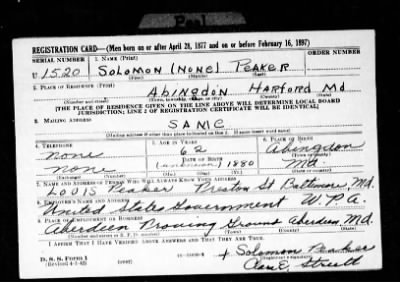 REGISTRATION CARD—(Men born on or after April 28, 1877 and on or before February 16, 1897)
SERIAL NUMBER 1. NAME (Print) ORDER NUMBER
U 1520 SOLOMON (NONE) PEAKER
(First) (Middle) (Last)
2. PLACE OF RESIDENCE (Print)
ABINGDON HARFORD Md
(Number and street) (Town, township, village, or city) (County) (State)
[THE PLACE OF RESIDENCE GIVEN ON THE LINE ABOVE WILL DETERMINE LOCAL BOARD
JURISDICTION; LINE 2 OF REGISTRATION CERTIFICATE WILL BE IDENTICAL]
3. MAILING ADDRESS
SAME
[Mailing address if other than place indicated on line 2. If same insert word same]
4. TELEPHONE 5. AGE IN YEARS 6. PLACE OF BIRTH
none 62 Abingdon
DATE OF BIRTH (Town or county)
none (unknown) 1880 Md.
(Exchange) (Number) (Mo.) (Day) (Yr.) (State or country)
7. NAME AND ADDRESS OF PERSON WHO WILL ALWAYS KNOW YOUR ADDRESS
LOUIS Peaker Preston St Baltimore, Md.
8. EMPLOYER'S NAME AND ADDRESS
United States Government W.P.A.
9. PLACE OF EMPLOYMENT OR BUSINESS
Aberdeen Proving Ground Aberdeen, Md.
(Number and street or R. F. D. number) (Town) (County) (State)
I AFFIRM THAT I HAVE VERIFIED ABOVE ANSWERS AND THAT THEY ARE TRUE.
D. S. S. Form 1 Solomon Peaker
(Revised 4-1-42) (over)